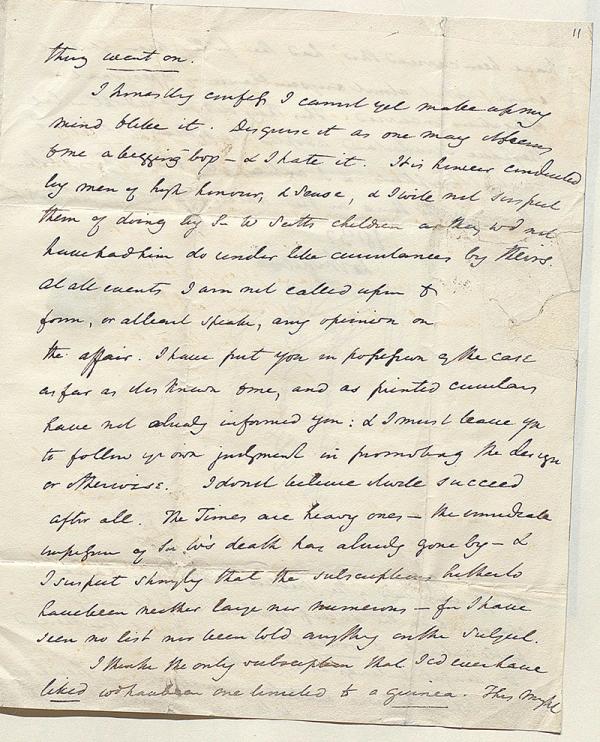 11
thing went on.
I honestly confess I cannot yet make up my
mind to like it. Disguise it as one may it seems
to me a begging box – & I hate it. It is however conducted
by men of high honour, & sense, & I will not suspect
them of doing by Sir W Scotts children as they wd not
have had him do under like circumstances by theirs.
At all events I am not called upon to
form, or at least speak, any opinion on
the affair. I have put you in possession of the case
as far as it is known to me, and as printed circulars
have not already informed you: & I must leave yr
to follow yr own judgment in promoting the design
or otherwise. I do not believe it will succeed
after all. The Times are heavy ones – the immediate
impression of Sir W's death has already gone by – &
I suspect strongly that the subscriptions hitherto
have been neither large nor numerous – for I have
seen no list nor been told anything on the subject.
I think the only subscription that I cd ever have
liked wd have been one limited to a guinea. This might